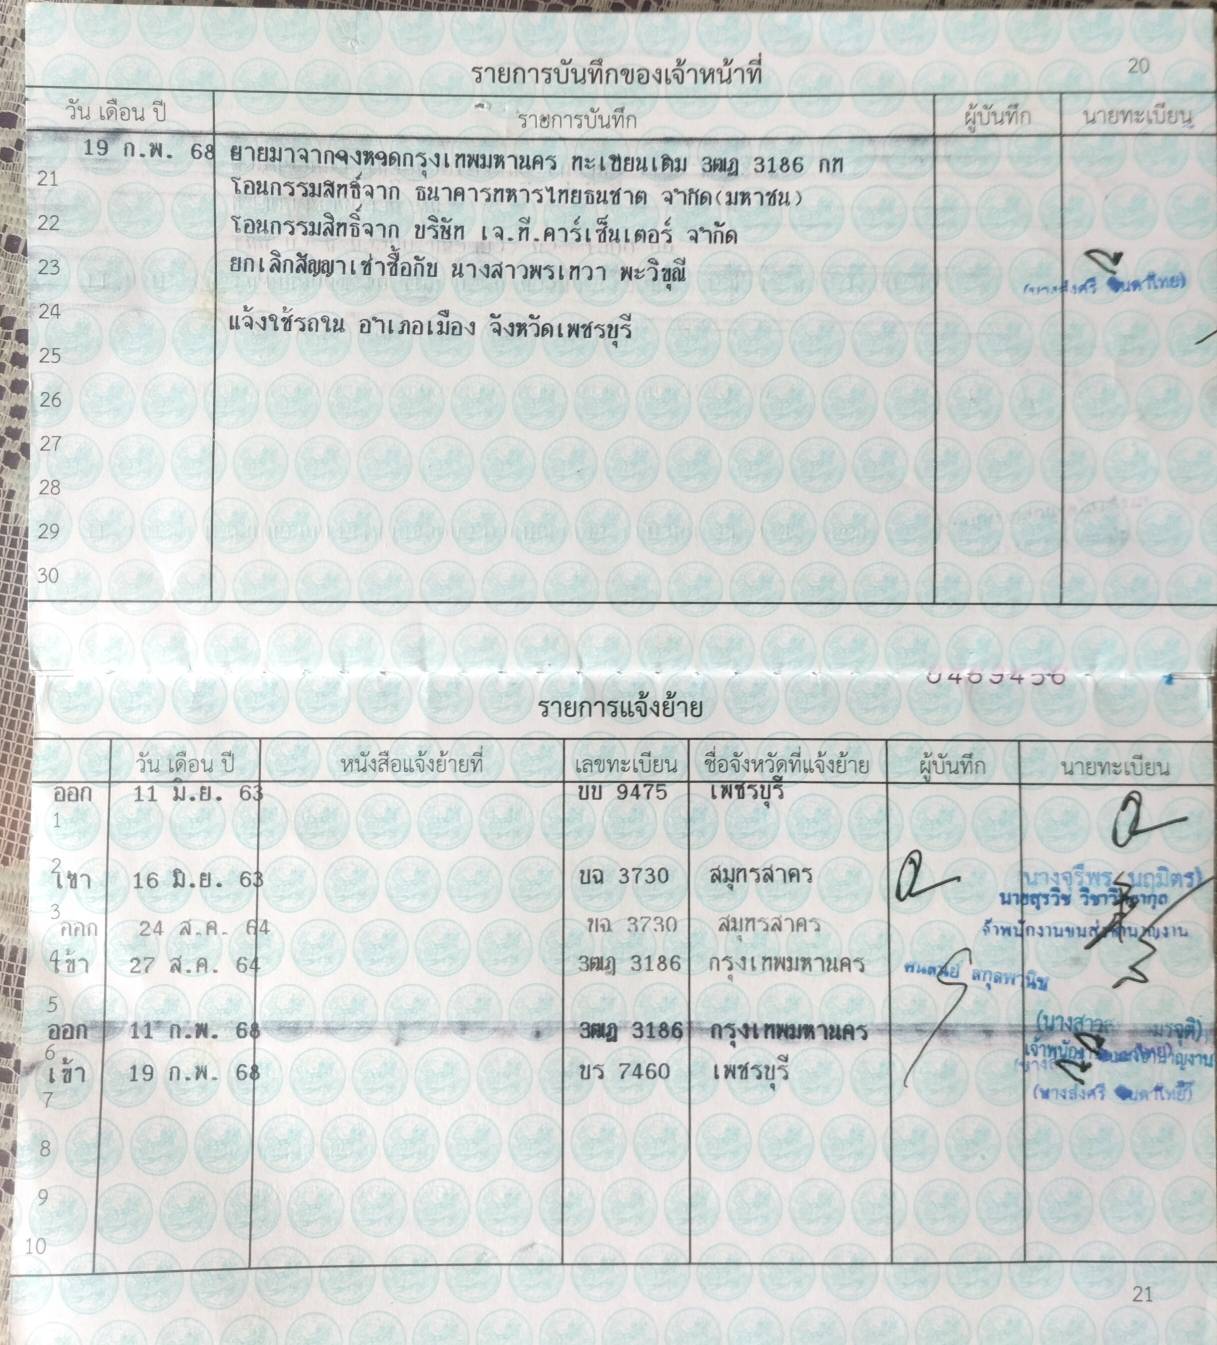 20
รายการบันทึกของเจ้าหน้าที่
วัน เดือน ปี รายการบันทึก ผู้บันทึก นายทะเบียน
19 ก.พ. 68 ย้ายมาจากจังหวัดกรุงเทพมหานคร ทะเบียนเดิม 3ฒฎ 3186 กท
21 โอนกรรมสิทธิ์จาก ธนาคารทหารไทยธนชาต จำกัด(มหาชน)
22 โอนกรรมสิทธิ์จาก บริษัท เจ.ที.คาร์เซ็นเตอร์ จำกัด
23 ยกเลิกสัญญาเช่าซื้อกับ นางสาวพรเทวา พะวิขุณี
24 แจ้งใช้รถใน อำเภอเมือง จังหวัดเพชรบุรี
25
26
27
28
29
30
0469456
รายการแจ้งย้าย
วัน เดือน ปี หนังสือแจ้งย้ายที่ เลขทะเบียน ชื่อจังหวัดที่แจ้งย้าย ผู้บันทึก นายทะเบียน
ออก 11 มิ.ย. 63 บบ 9475 เพชรบุรี
1
2
เข้า 16 มิ.ย. 63 บฉ 3730 สมุทรสาคร
3
ออก 24 ส.ค. 64 บฉ 3730 สมุทรสาคร
4
เข้า 27 ส.ค. 64 3ฒฎ 3186 กรุงเทพมหานคร
5
ออก 11 ก.พ. 68 3ฒฎ 3186 กรุงเทพมหานคร
6
เข้า 19 ก.พ. 68 บร 7460 เพชรบุรี
7
8
9
10
21